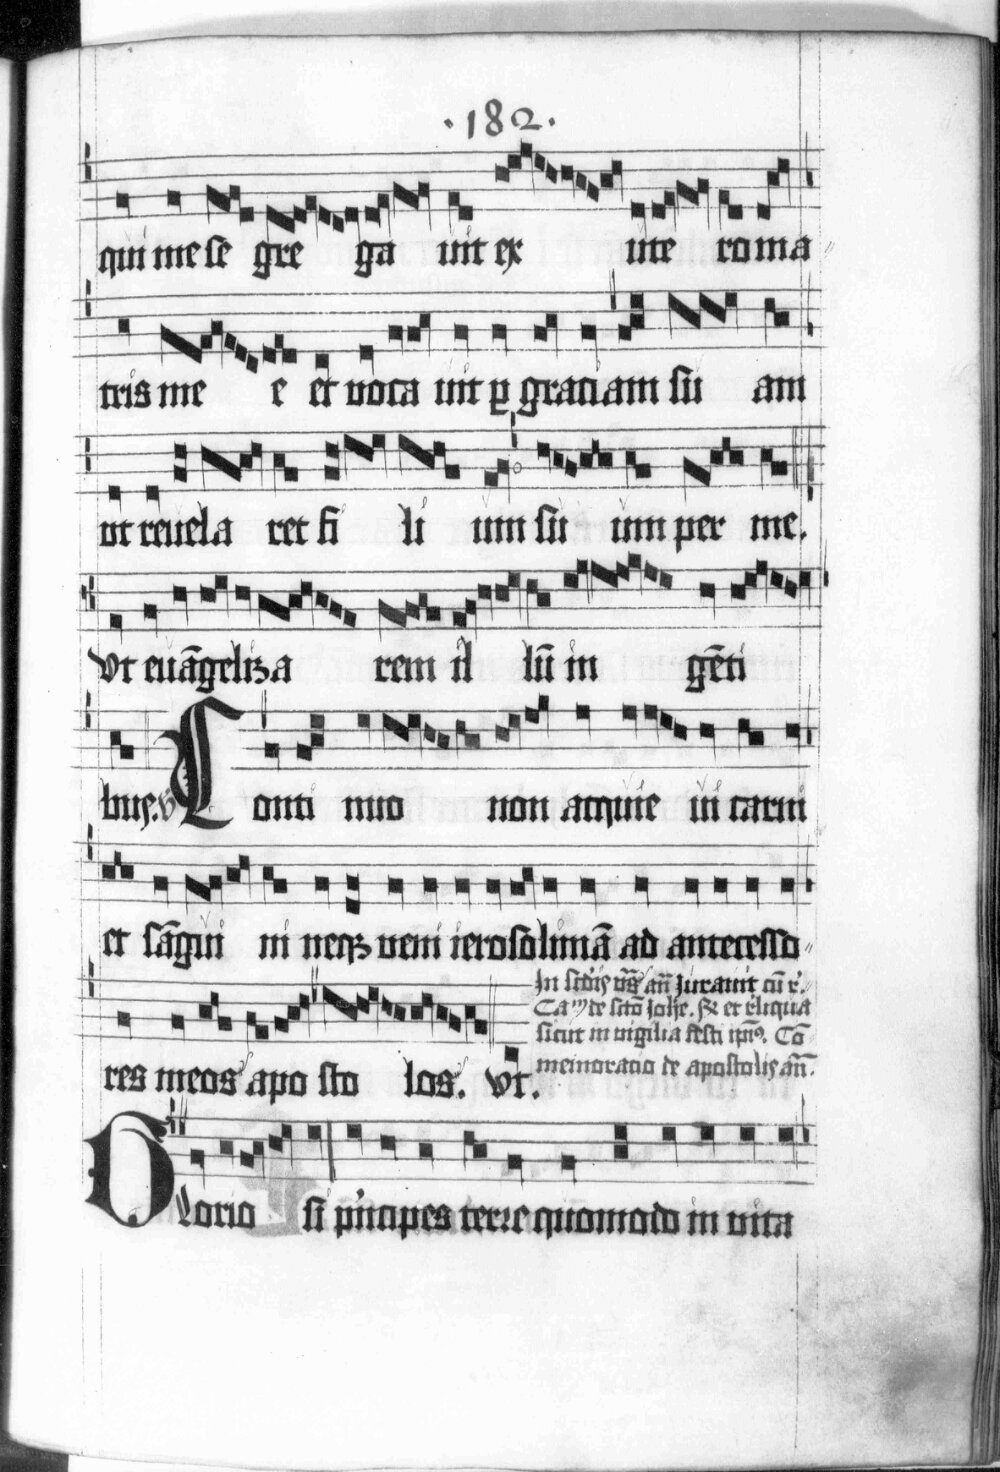 ·182·
qui me se gre ga uit ex ute ro ma
tris me e et voca uit p graciam su am
vt reuela ret fi li um su um per me.
vt euāgeliza rem il lū in gēti
bus. V Conti nuo non acquie ui carni
et sāgui ni neqꝫ veni ierosolimā ad antecesso
res meos apo sto los. vt.
sicut in vigilia festi Cō
memoracio de apostolis an̄.
Glorio si p'ncipes terre quomodo in vita